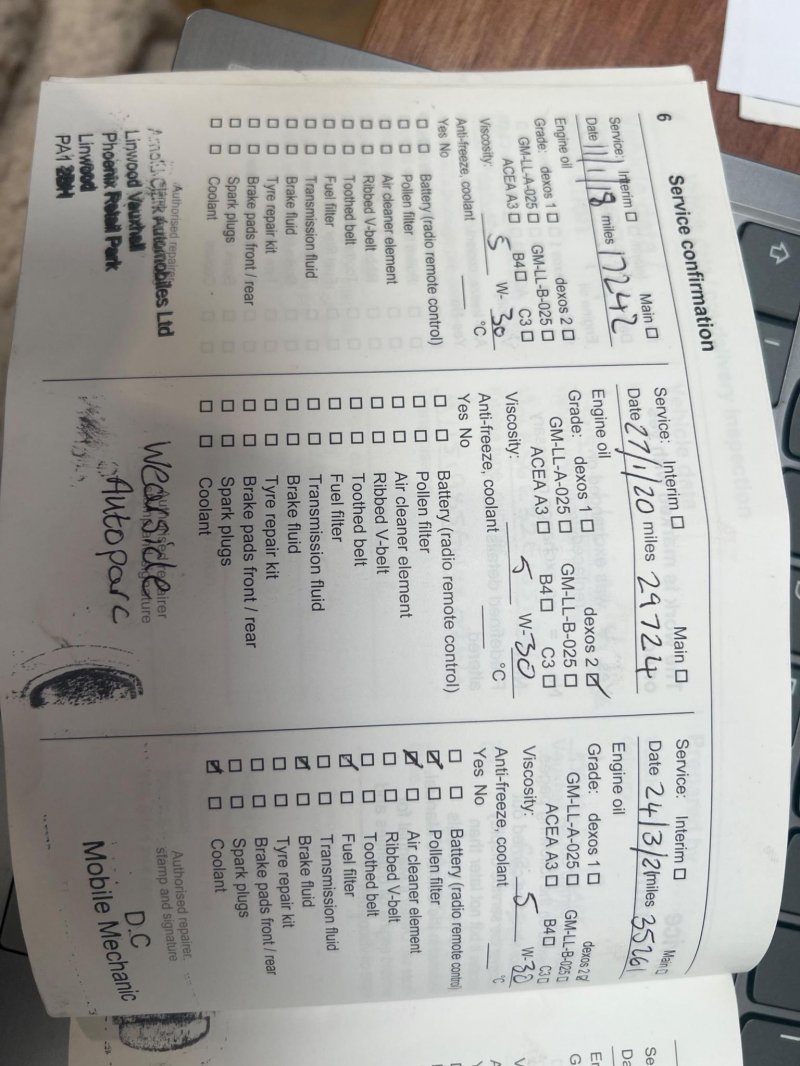 6
Service confirmation
Service: Interim ☐ Main ☐
Date 11/1/18 miles 17242
Engine oil
Grade: dexos 1 ☐ dexos 2 ☐
GM-LL-A-025 ☐ GM-LL-B-025 ☐
ACEA A3 ☐ B4 ☐ C3 ☐
Viscosity: 5 W- 30
Anti-freeze, coolant °C
Yes No
☐ ☐ Battery (radio remote control)
☐ ☐ Pollen filter
☐ ☐ Air cleaner element
☐ ☐ Ribbed V-belt
☐ ☐ Toothed belt
☐ ☐ Fuel filter
☐ ☐ Transmission fluid
☐ ☐ Brake fluid
☐ ☐ Tyre repair kit
☐ ☐ Brake pads front / rear
☐ ☐ Spark plugs
☐ ☐ Coolant
Authorised repairer
Arnold Clark Automobiles Ltd
Linwood Vauxhall
Phoenix Retail Park
Linwood
PA1 2BH
Service: Interim ☐ Main ☐
Date 27/1/20 miles 29724
Engine oil
Grade: dexos 1 ☐ dexos 2 ☑
GM-LL-A-025 ☐ GM-LL-B-025 ☐
ACEA A3 ☐ B4 ☐ C3 ☐
Viscosity: 5 W- 30
Anti-freeze, coolant °C
Yes No
☐ ☐ Battery (radio remote control)
☐ ☐ Pollen filter
☐ ☐ Air cleaner element
☐ ☐ Ribbed V-belt
☐ ☐ Toothed belt
☐ ☐ Fuel filter
☐ ☐ Transmission fluid
☐ ☐ Brake fluid
☐ ☐ Tyre repair kit
☐ ☐ Brake pads front / rear
☐ ☐ Spark plugs
☐ ☐ Coolant
Wearside
Autoparc
Service: Interim ☐ Main ☐
Date 24/3/21 miles 35261
Engine oil
Grade: dexos 1 ☐ dexos 2 ☑
GM-LL-A-025 ☐ GM-LL-B-025 ☐
ACEA A3 ☐ B4 ☐ C3 ☐
Viscosity: 5 W- 30
Anti-freeze, coolant °C
Yes No
☐ ☐ Battery (radio remote control)
☑ ☐ Pollen filter
☑ ☐ Air cleaner element
☐ ☐ Ribbed V-belt
☐ ☐ Toothed belt
☑ ☐ Fuel filter
☐ ☐ Transmission fluid
☑ ☐ Brake fluid
☐ ☐ Tyre repair kit
☐ ☐ Brake pads front / rear
☐ ☐ Spark plugs
☑ ☐ Coolant
Authorised repairer
stamp and signature
D.C
Mobile Mechanic